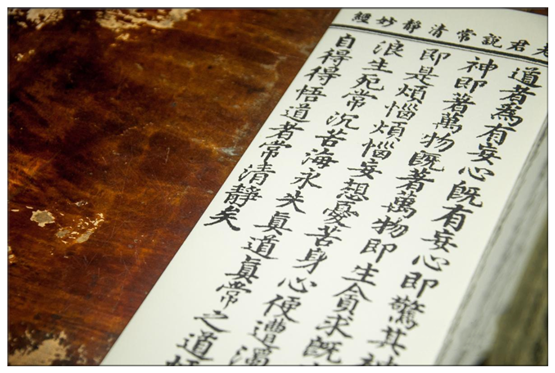 君說常清靜妙經
道者為有妄心既有妄心即驚其神
神即著萬物既著萬物即生貪求既
即是煩惱煩惱妄想憂苦身心便遭濁
浪生死常沉苦海永失眞道眞常之道悟
自得得悟道者常清靜矣